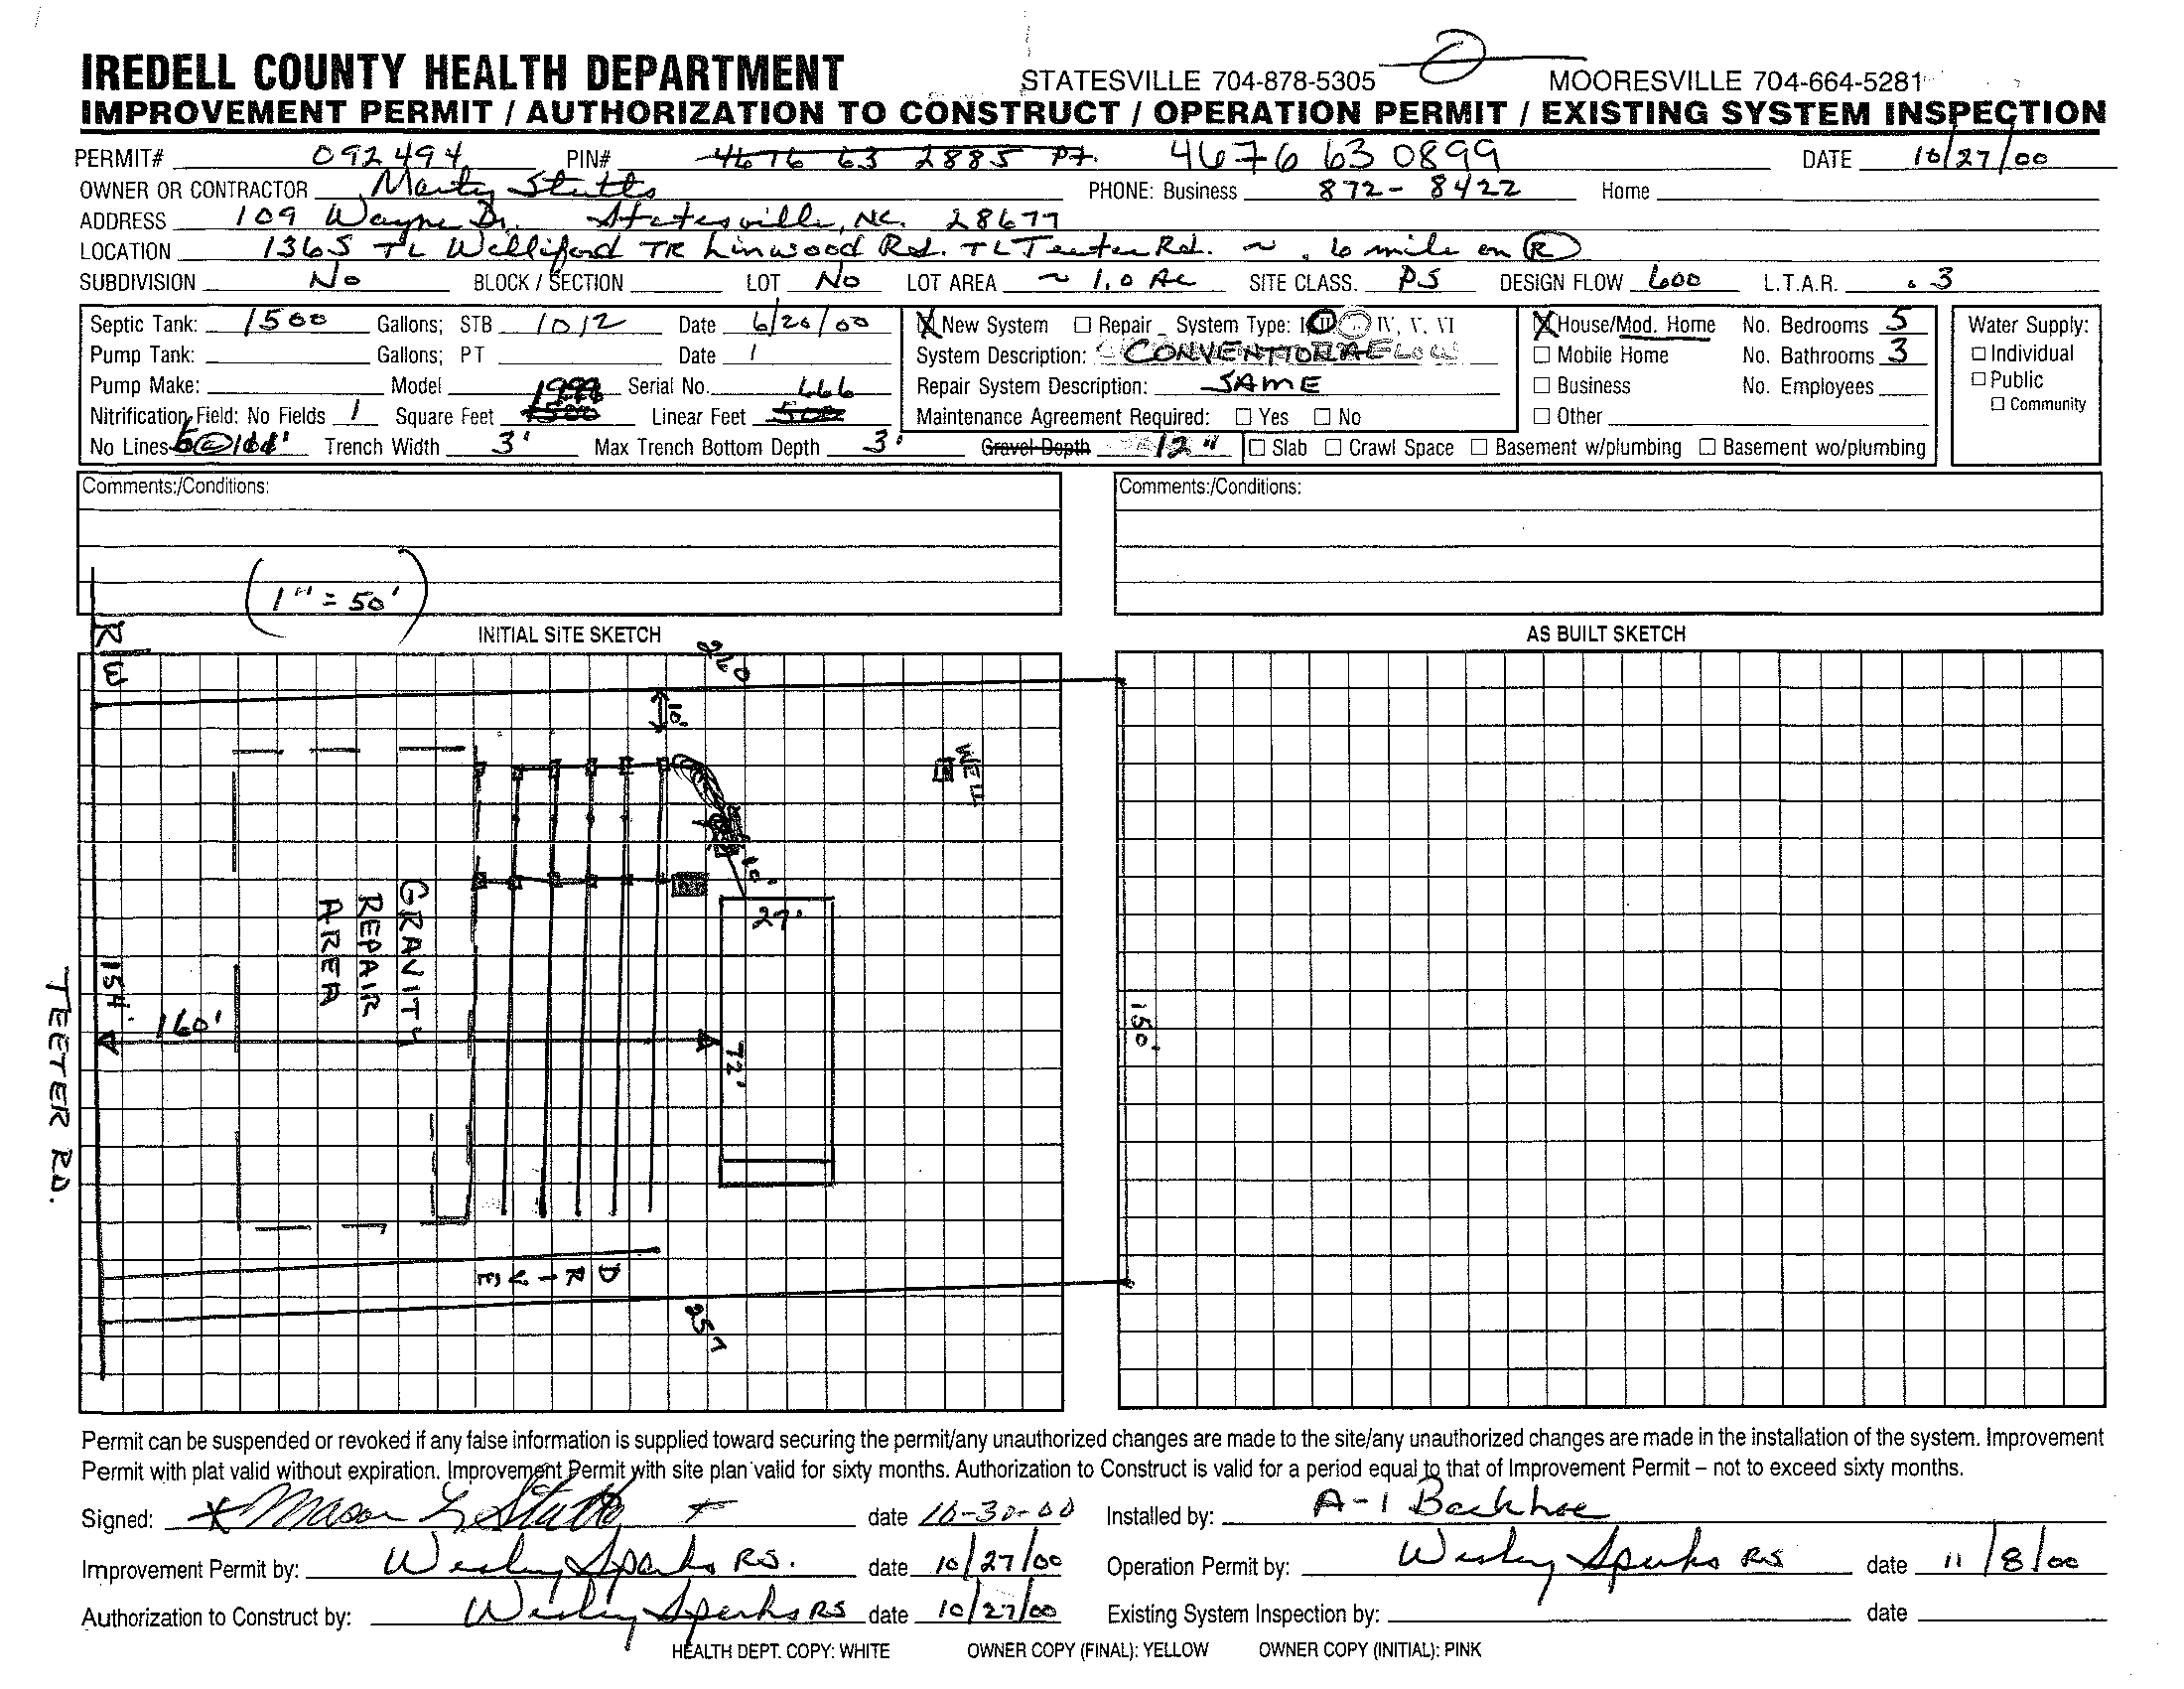 IREDELL COUNTY HEALTH DEPARTMENT STATESVILLE 704-878-5305 MOORESVILLE 704-664-5281
IMPROVEMENT PERMIT / AUTHORIZATION TO CONSTRUCT / OPERATION PERMIT / EXISTING SYSTEM INSPECTION
PERMIT# 092494 PIN# 4676 63 2885 Pt. 4676 63 0899 DATE 10/27/00
OWNER OR CONTRACTOR Marty Stutts PHONE: Business 872-8422 Home
ADDRESS 109 Wayne Dr. Statesville, NC. 28677
LOCATION 136S TL Williford TR Linwood Rd. TL Teeter Rd. ~ .6 mile on R
SUBDIVISION No BLOCK / SECTION LOT No LOT AREA ~ 1.0 Ac SITE CLASS. PS DESIGN FLOW 600 L.T.A.R. .3
Septic Tank: 1500 Gallons; STB 1012 Date 6/20/00 X New System Repair System Type: II IV, V, VI X House/Mod. Home No. Bedrooms 5 Water Supply:
Pump Tank: Gallons; PT Date / System Description: CONVENTIONAL Mobile Home No. Bathrooms 3 Individual
Pump Make: Model Serial No. 666 Repair System Description: SAME Business No. Employees Public
Nitrification Field: No Fields 1 Square Feet Linear Feet Maintenance Agreement Required: Yes No Other Community
No Lines Trench Width 3' Max Trench Bottom Depth 3' Gravel Depth 12" Slab Crawl Space Basement w/plumbing Basement wo/plumbing
Comments:/Conditions: Comments:/Conditions:
(1" = 50')
INITIAL SITE SKETCH AS BUILT SKETCH
R/W
260
10'
WELL
10'
27'
GRAVITY
REPAIR
AREA
154'
160'
72'
150'
TEETER RD.
DRIVE
257
Permit can be suspended or revoked if any false information is supplied toward securing the permit/any unauthorized changes are made to the site/any unauthorized changes are made in the installation of the system. Improvement
Permit with plat valid without expiration. Improvement Permit with site plan valid for sixty months. Authorization to Construct is valid for a period equal to that of Improvement Permit – not to exceed sixty months.
Signed: Mason L Stutts date 10-30-00 Installed by: A-1 Backhoe
Improvement Permit by: Wesley Sparks RS. date 10/27/00 Operation Permit by: Wesley Sparks RS date 11/8/00
Authorization to Construct by: Wesley Sparks RS date 10/27/00 Existing System Inspection by: date
HEALTH DEPT. COPY: WHITE OWNER COPY (FINAL): YELLOW OWNER COPY (INITIAL): PINK